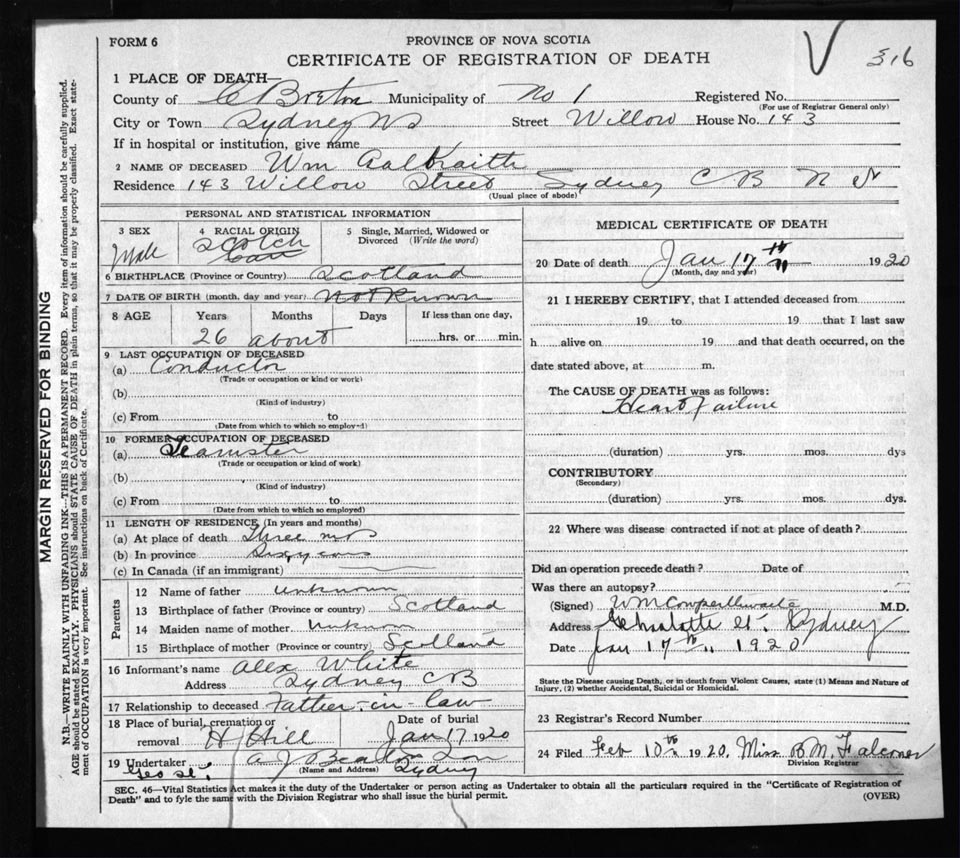 FORM 6
PROVINCE OF NOVA SCOTIA
316
CERTIFICATE OF REGISTRATION OF DEATH
1 PLACE OF DEATH—
County of C Breton Municipality of No 1 Registered No.
(For use of Registrar General only)
City or Town Sydney NS Street Willow House No. 143
If in hospital or institution, give name
2 NAME OF DECEASED Wm Galbraith
Residence 143 Willow Street Sydney C B N S
(Usual place of abode)
PERSONAL AND STATISTICAL INFORMATION
3 SEX
Male
4 RACIAL ORIGIN
Scotch
5 Single, Married, Widowed or
Divorced (Write the word)
6 BIRTHPLACE (Province or Country) Scotland
7 DATE OF BIRTH (month, day and year) Not Known
8 AGE Years Months Days If less than one day,
26 about hrs. or min.
9 LAST OCCUPATION OF DECEASED
(a) Conductor
(Trade or occupation or kind or work)
(b)
(Kind of industry)
(c) From to
(Date from which to which so employed)
10 FORMER OCCUPATION OF DECEASED
(a) Teamster
(Trade or occupation or kind of work)
(b)
(Kind of industry)
(c) From to
(Date from which to which so employed)
11 LENGTH OF RESIDENCE (In years and months)
(a) At place of death Three mos
(b) In province
(c) In Canada (if an immigrant)
Parents
12 Name of father unknown
13 Birthplace of father (Province or country) Scotland
14 Maiden name of mother Unknown
15 Birthplace of mother (Province or country) Scotland
16 Informant's name Alex White
Address Sydney CB
17 Relationship to deceased Father-in-law
18 Place of burial, cremation or
removal H Hill
Date of burial
Jan 17 1920
19 Undertaker A J Beaton
Geo St. (Name and Address) Sydney
MEDICAL CERTIFICATE OF DEATH
20 Date of death Jan 17 th 1920
(Month, day and year)
21 I HEREBY CERTIFY, that I attended deceased from
19 to 19 that I last saw
h alive on 19 and that death occurred, on the
date stated above, at m.
The CAUSE OF DEATH was as follows:
Heart failure
(duration) yrs. mos. dys
CONTRIBUTORY
(Secondary)
(duration) yrs. mos. dys.
22 Where was disease contracted if not at place of death?
Did an operation precede death? Date of
Was there an autopsy?
(Signed) WM Cowperthwaite M.D.
Address Charlotte St. Sydney
Date Jan 17 th 1920
State the Disease causing Death, or in death from Violent Causes, state (1) Means and Nature of
Injury, (2) whether Accidental, Suicidal or Homicidal.
23 Registrar's Record Number
24 Filed Feb 10 th 1920. Miss B M. Falconer
Division Registrar
SEC. 46—Vital Statistics Act makes it the duty of the Undertaker or person acting as Undertaker to obtain all the particulars required in the "Certificate of Registration of
Death" and to fyle the same with the Division Registrar who shall issue the burial permit.
(OVER)
MARGIN RESERVED FOR BINDING
N.B.—WRITE PLAINLY WITH UNFADING INK—THIS IS A PERMANENT RECORD. Every item of information should be carefully supplied.
AGE should be stated EXACTLY. PHYSICIANS should STATE CAUSE OF DEATH in plain terms, so that it may be properly classified. Exact state-
ment of OCCUPATION is very important. See instructions on back of Certificate.